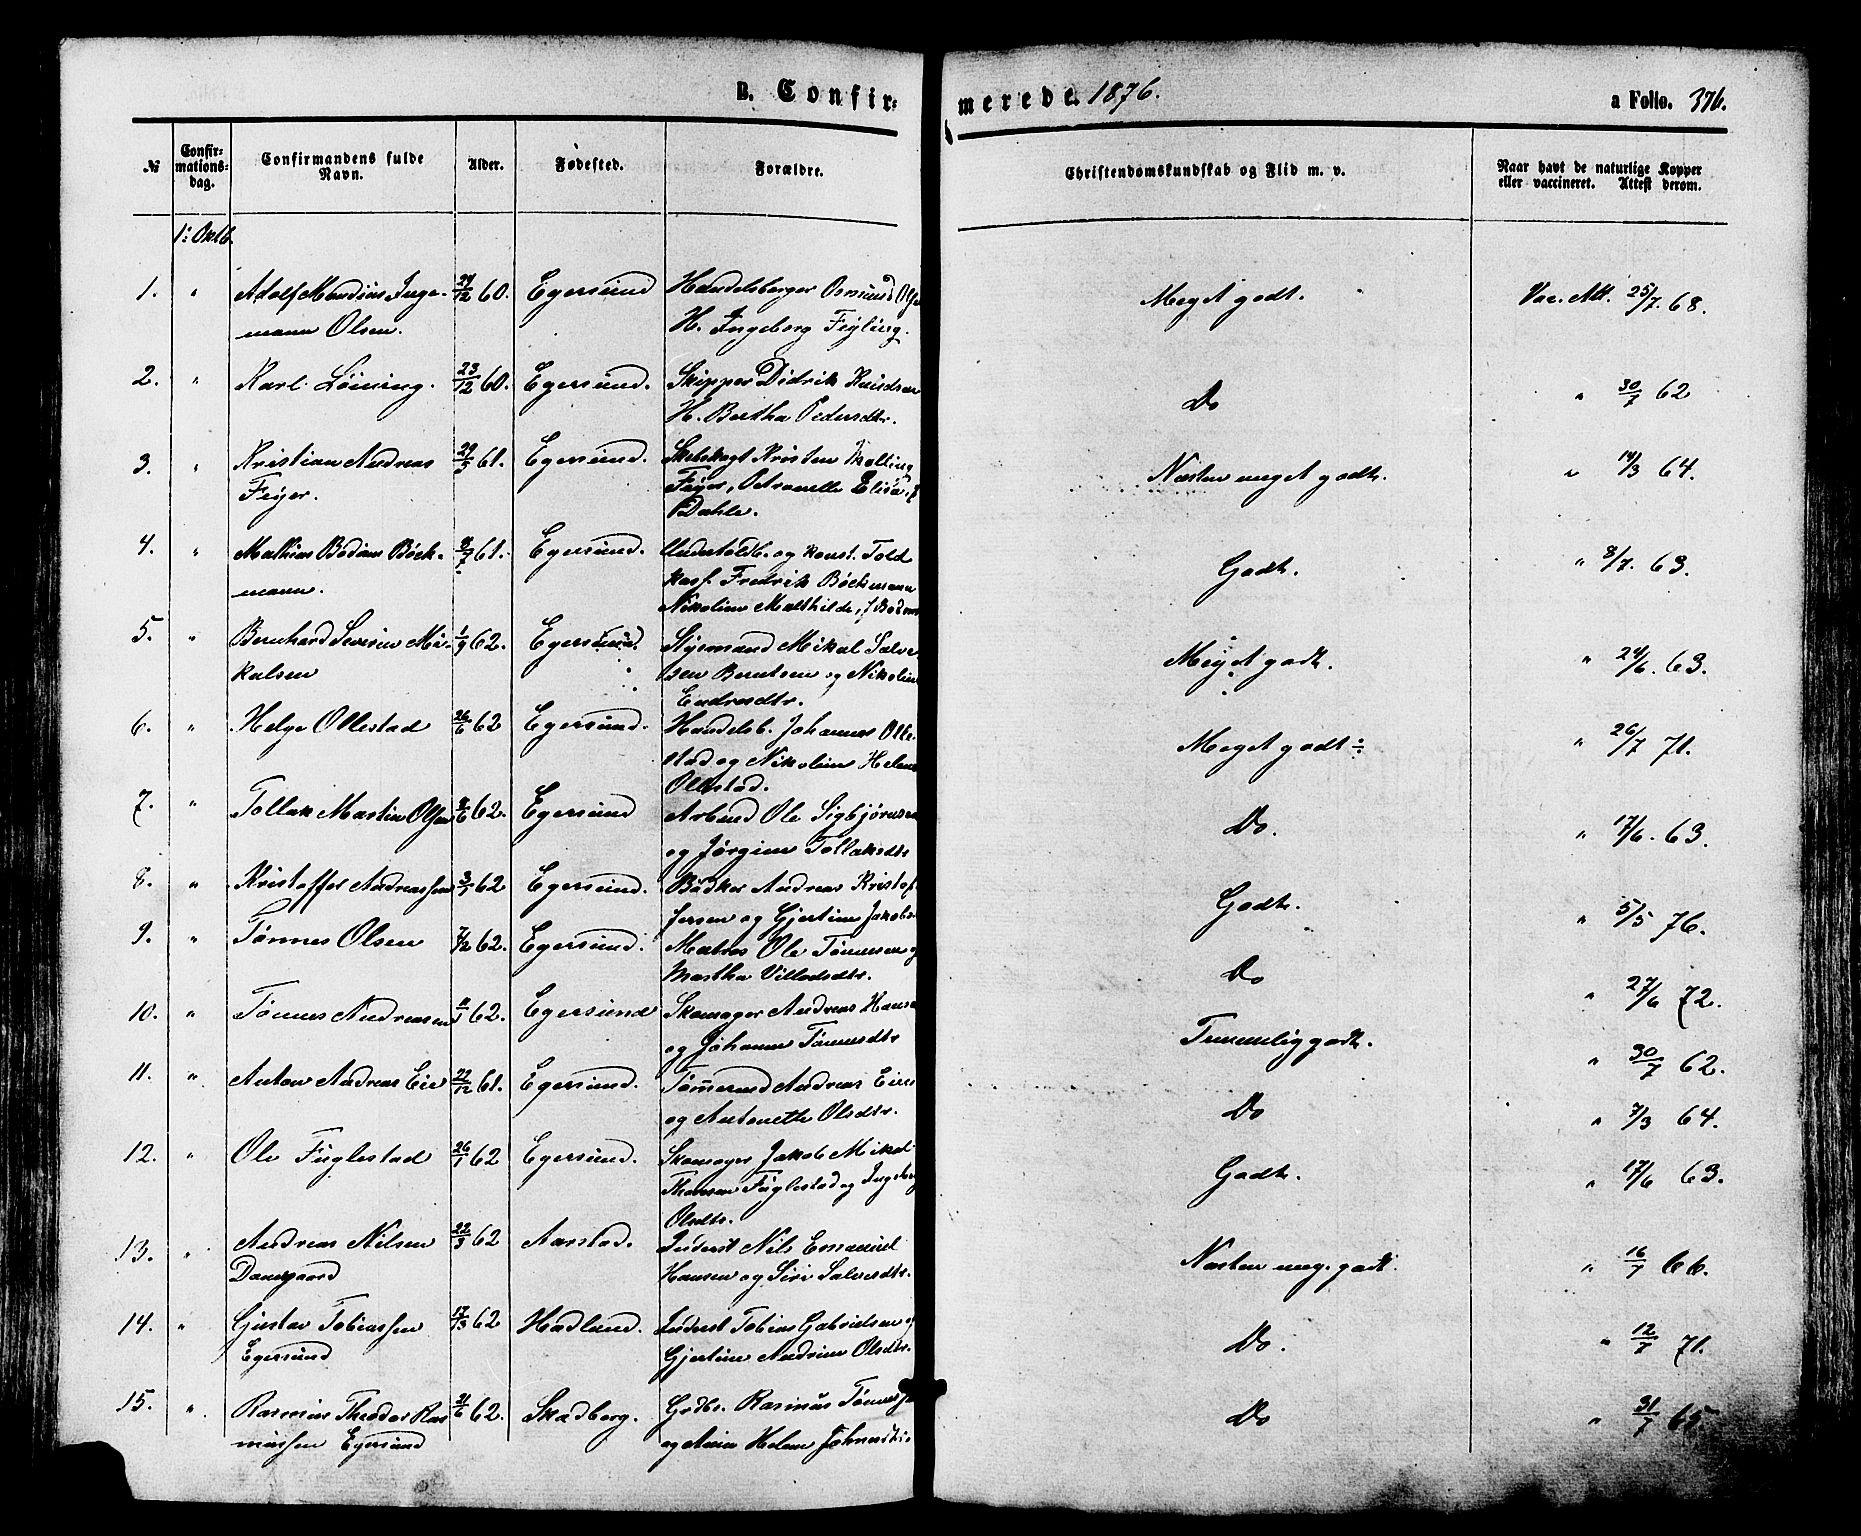 B. Confir=
merede. 1876.
a Folio. 376.
№
Confir=
mations=
dag.
Confirmandens fulde
Navn.
Alder.
Fødested.
Forældre.
Christendomskundskab og Flid m. v.
Naar havt de naturlige Kopper
eller vaccineret. Attest derom.
1: Oktb.
1. " Adolf Mandius Inge- 27/12 60. Egersund Handelsborger Osmund Olsen Meget godt. Vac. Att. 25/7. 68.
mann Olsen. H. Ingeborg Feyling.
2. " Karl Löining. 23/12 60. Egersund. Skipper Didrik Knudsen Do " 30/7 62
H. Bertha Pedersdtr.
3. " Kristian Andreas 29/5 61. Egersund. Kristen Mölling Næsten meget godt. " 14/3 64.
Feyer. Feyer, Petronelle Elisa, f
Dahle.
4. " Mathias Bodom Böck- 8/7 61. Egersund. Undertoldb. og konst. Told Godt. " 8/7. 63.
mann. kass. Fredrik Böckmann
Nikoline Mathilde, f Bodom
5. " Bernhard Severin Mi- 1/9 62. Egersund. Styrmand Mikal Salve- Meget godt. " 24/6. 63.
kalsen sen Berntsen og Nikoline
Endresdtr.
6. " Helge Ollestad 26/6 62 Egersund. Handelsb. Johannes Olle- Meget godt ÷ " 26/7 71.
stad og Nikoline Helene
Ollestad.
7. " Tollak Martin Olsen 8/6 62. Egersund Arbmd Ole Sigbjörnsen Do. " 17/6. 63.
og Jörgine Tollaksdtr
8. " Kristoffer Andreassen 3/1 62 Egersund. Bödker Andreas Kristof- Godt. " 5/5 76.
fersen og Gjertine Jakobs-
9. " Tönnes Olsen 7/12 62. Egersund. Matros Ole Tönnesen og Do " 27/6 72.
Martha Villadsdtr.
10. " Tönnes Andreasen 11/5 62. Egersund Skomager Andreas Hansen Temmelig godt. " 30/7 62.
og Johanne Tönnesdtr
11. " Anton Andreas Eie 22/12 61. Egersund. Tömmermd Andreas Eie Do " 7/3 64.
og Antonette Olsdtr.
12. " Ole Fuglestad 26/1 62 Egersund. Skomager Jakob Mikal Godt. " 17/6 63.
Thomsen Fuglestad og Ingeborg
Olsdtr.
13. " Andreas Nilsen 22/3 62 Aarstad. Inderst Nils Emanuel Næsten meg. godt. " 16/7 66.
Damsgaard Hansen og Siri Salvesdtr.
14. " Gustav Tobiassen 17/3 62 Hadland. Inderst Tobias Gabrielsen og Do. " 12/7 71.
Egersund Gjertine Andrine Olsdtr.
15. " Rasmus Theodor Ras- 2/6 62. Skadberg. Grdbr. Rasmus Tönnessen Do " 31/7 65.
mussen Egersund og Anne Helene